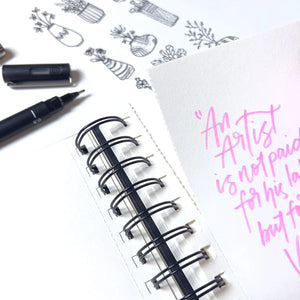 "An
Artist
is not paid
for his la
but f